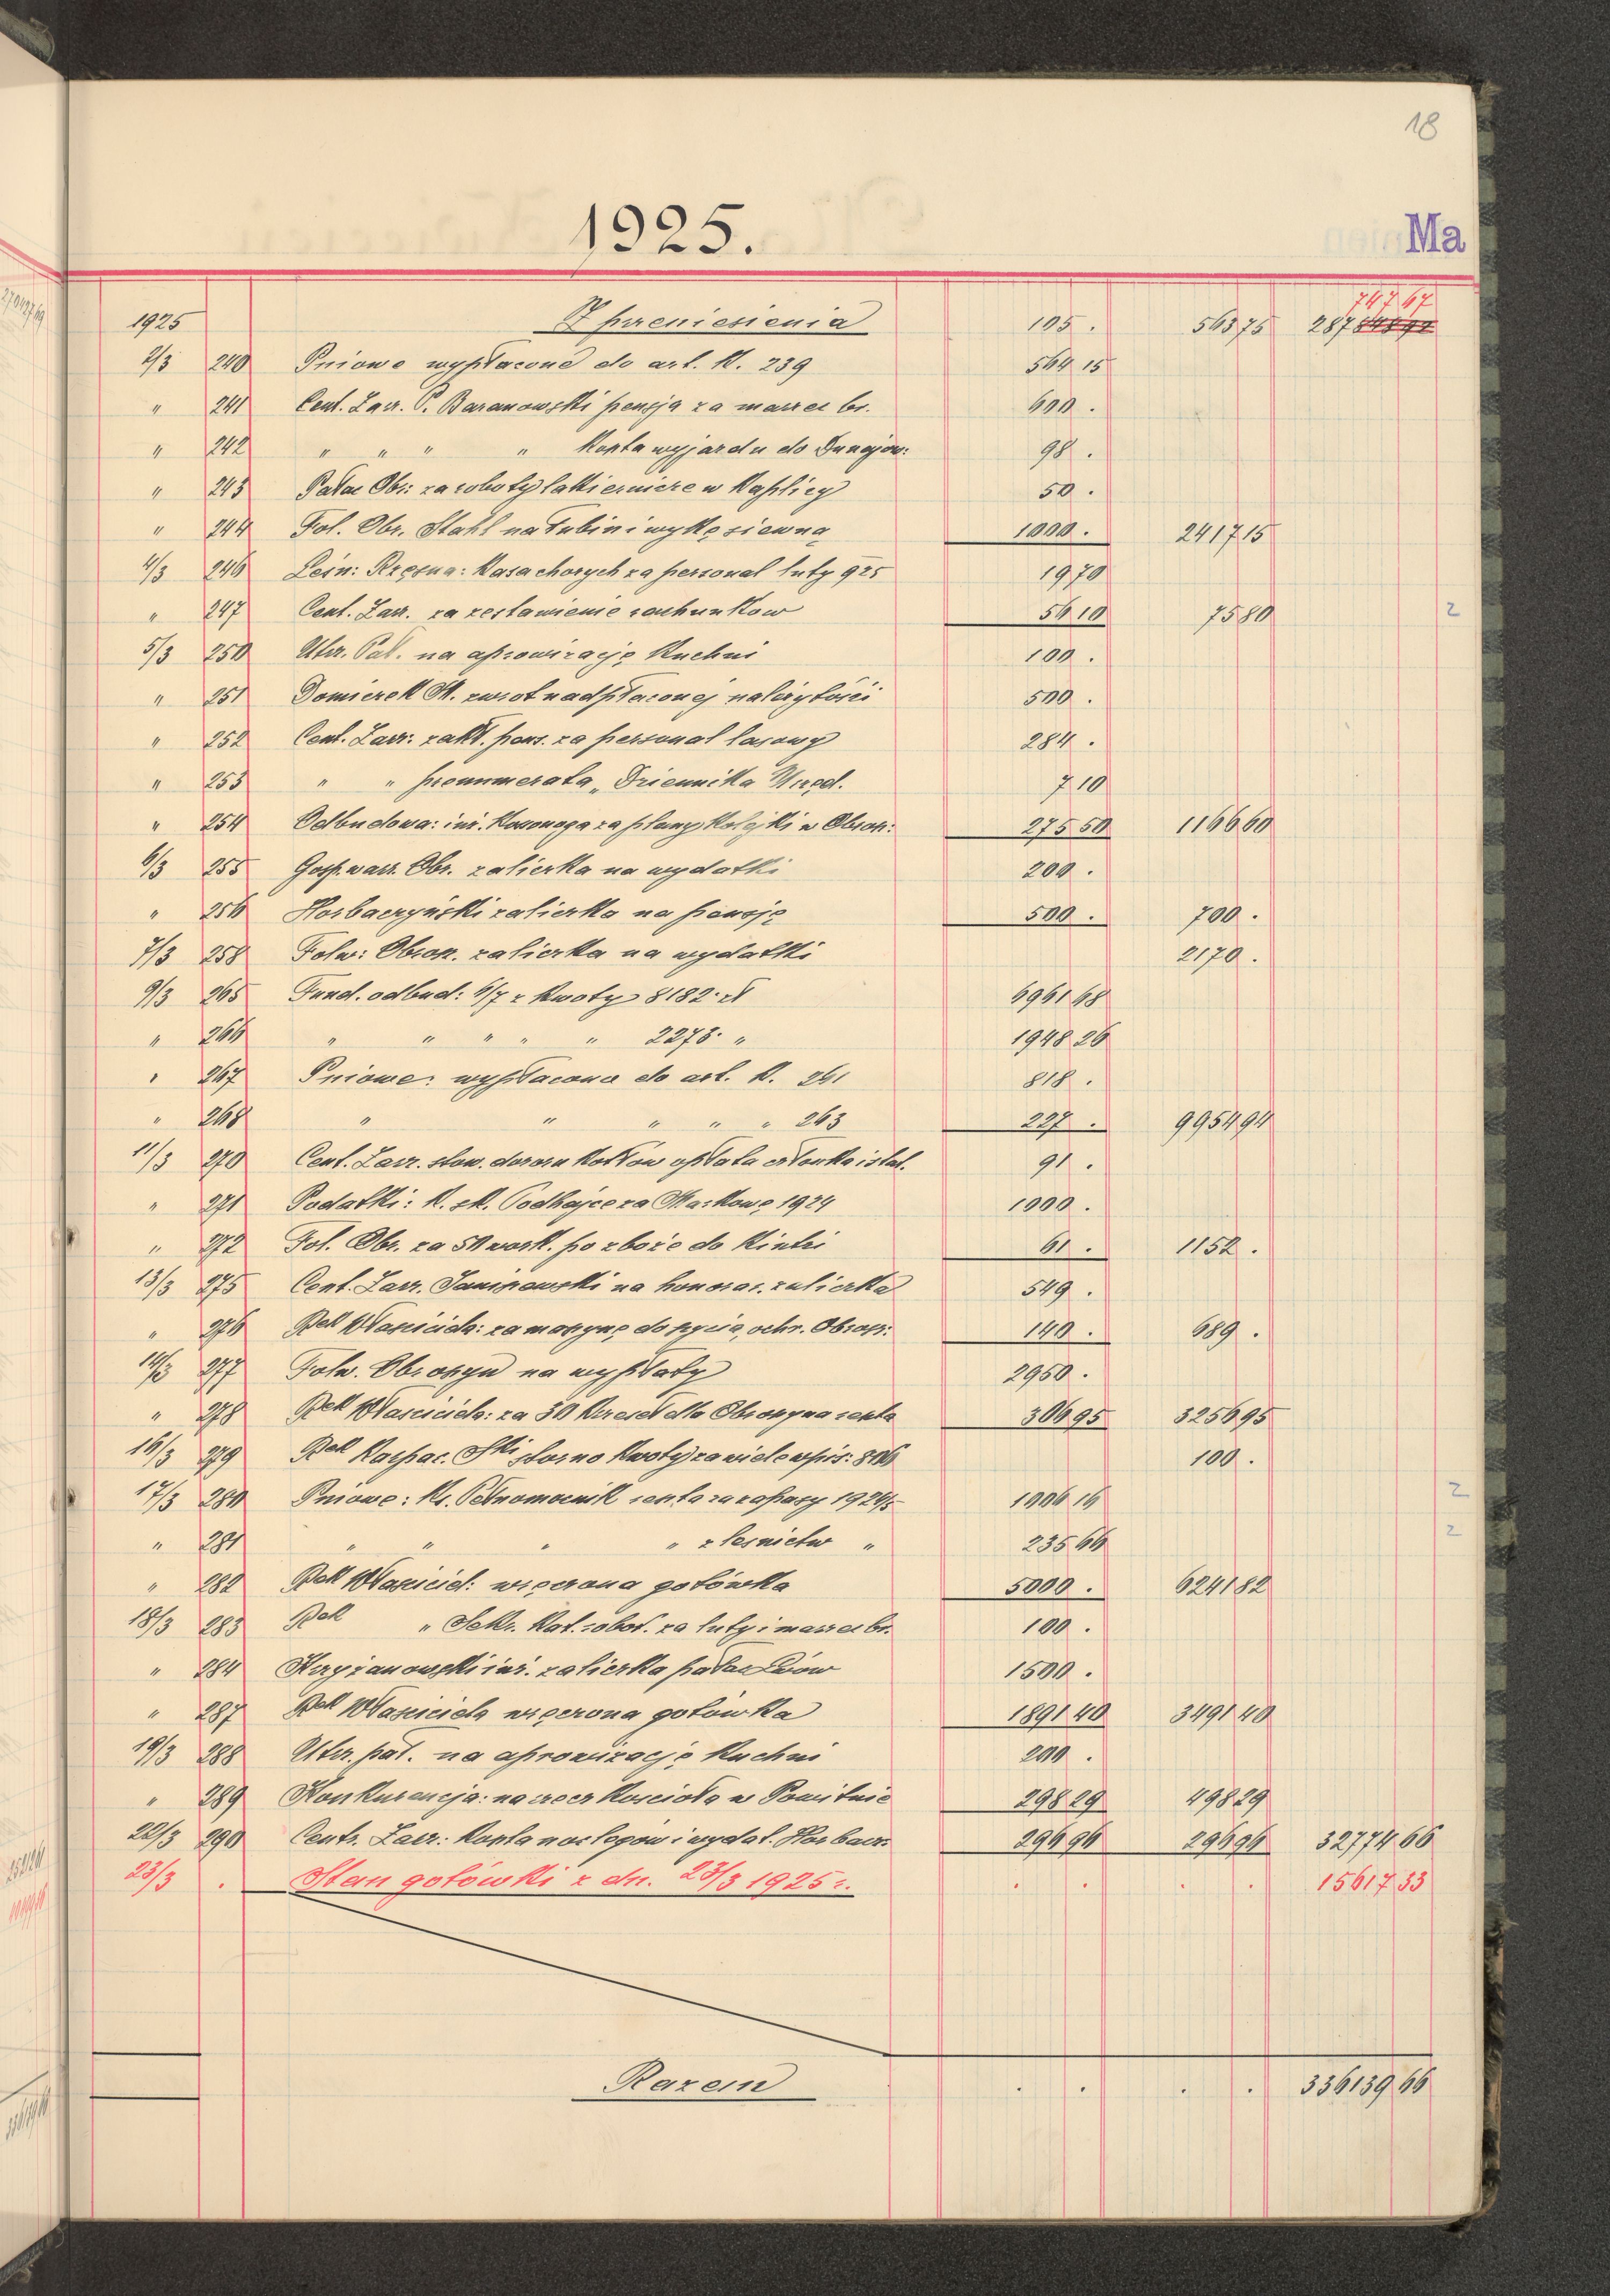 18
1925.
Ma
747 67
1925 Z przeniesienia 105 . 563 75 287
2/3 240 Pniowe wypłacone do art. K. 239 564 15
" 241 Cent. Zarz. P. Baranowski pensja za marzec br. 600 .
" 242 " " " " Koszta wyjazdu do Dunajow: 98 .
" 243 Pałac Obr: za roboty lakiernicze w Kaplicy 50 .
" 244 Fol. Obr. Stahl na łubin i wykę siewną 1000 . 2417 15
4/3 246 Leśn: Rzęsna: Kasa chorych za personal luty 925 19 70
" 247 Cent. Zarz. za zestawienie rachunków 56 10 75 80
5/3 250 Utrz. Pał. na aprowizację Kuchni 100 .
" 251 Domierek M. zwrot nadpłaconej należytości 500 .
" 252 Cent. Zarz: zakł. pens. za personal lasowy 284 .
" 253 " " prenumerata „Dziennika Urzęd. 7 10
" 254 Odbudowa: inż. Kosonoga za plany Kolejki w Obrosz: 275 50 1166 60
6/3 255 Gosp. warz. Obr. zaliczka na wydatki 200 .
" 256 Horbaczyński zaliczka na pensję 500 . 700 .
7/3 258 Folw: Obrosz. zaliczka na wydatki 2170 .
9/3 265 Fund. odbud: 6/7 z Kwoty 8182 · zł 6961 68
" 266 " " " " " 2273 · " 1948 26
" 267 Pniowe: wypłacona do art. K. 261 818 .
" 268 " " " " " 263 227 . 9954 94
11/3 270 Cent. Zarz. stow. dozoru Kotłów opłata członka i stał. 91 .
" 271 Podatki: K. sk. Podhajce za Markowę 1924 1000 .
" 272 Fol. Obr. za 50 work. po zboże do Kintzi 61 . 1152 .
13/3 275 Cent. Zarz. Janiszewski na honorar. zaliczka 549 .
" 276 Rek Właściciela: za maszynę do szycia, ochr. Obrosz: 140 . 689 .
14/3 277 Folw. Obroszyn na wypłaty 2950 .
" 278 Rek Właściciela: za 30 Krzeseł dla Obroszyna reszta 306 95 3256 95
16/3 279 Rek Kaspar. Ski storno Kwoty za wiele wpis: 806 100 .
17/3 280 Pniowe: Kr. Pełnomocnik reszta za zapasy 1924/5 1006 16
" 281 " " " " z leśnictw " 235 66
" 282 Rek Właściciel: wręczona gotówka 5000 . 6241 82
18/3 283 Rek " Sekr. Kat. robot. za luty i marzec br. 100 .
" 284 Krzyżanowski inż. zaliczka pałac Lwów 1500 .
" 287 Rek Właściciela wręczona gotówka 1891 40 3491 40
19/3 288 Utrz. pał. na aprowizację Kuchni 200 .
" 289 Konkurencja: na rzecz Kościoła w Pomitnie 298 29 498 29
22/3 290 Centr. Zarz: Koszta noclegów i wydat. Horbacz. 296 96 296 96 32774 66
23/3 . Stan gotówki z dn. 23/3 1925 r. . . . . 15617 33
Razem . . . . 336139 66
2
2
2